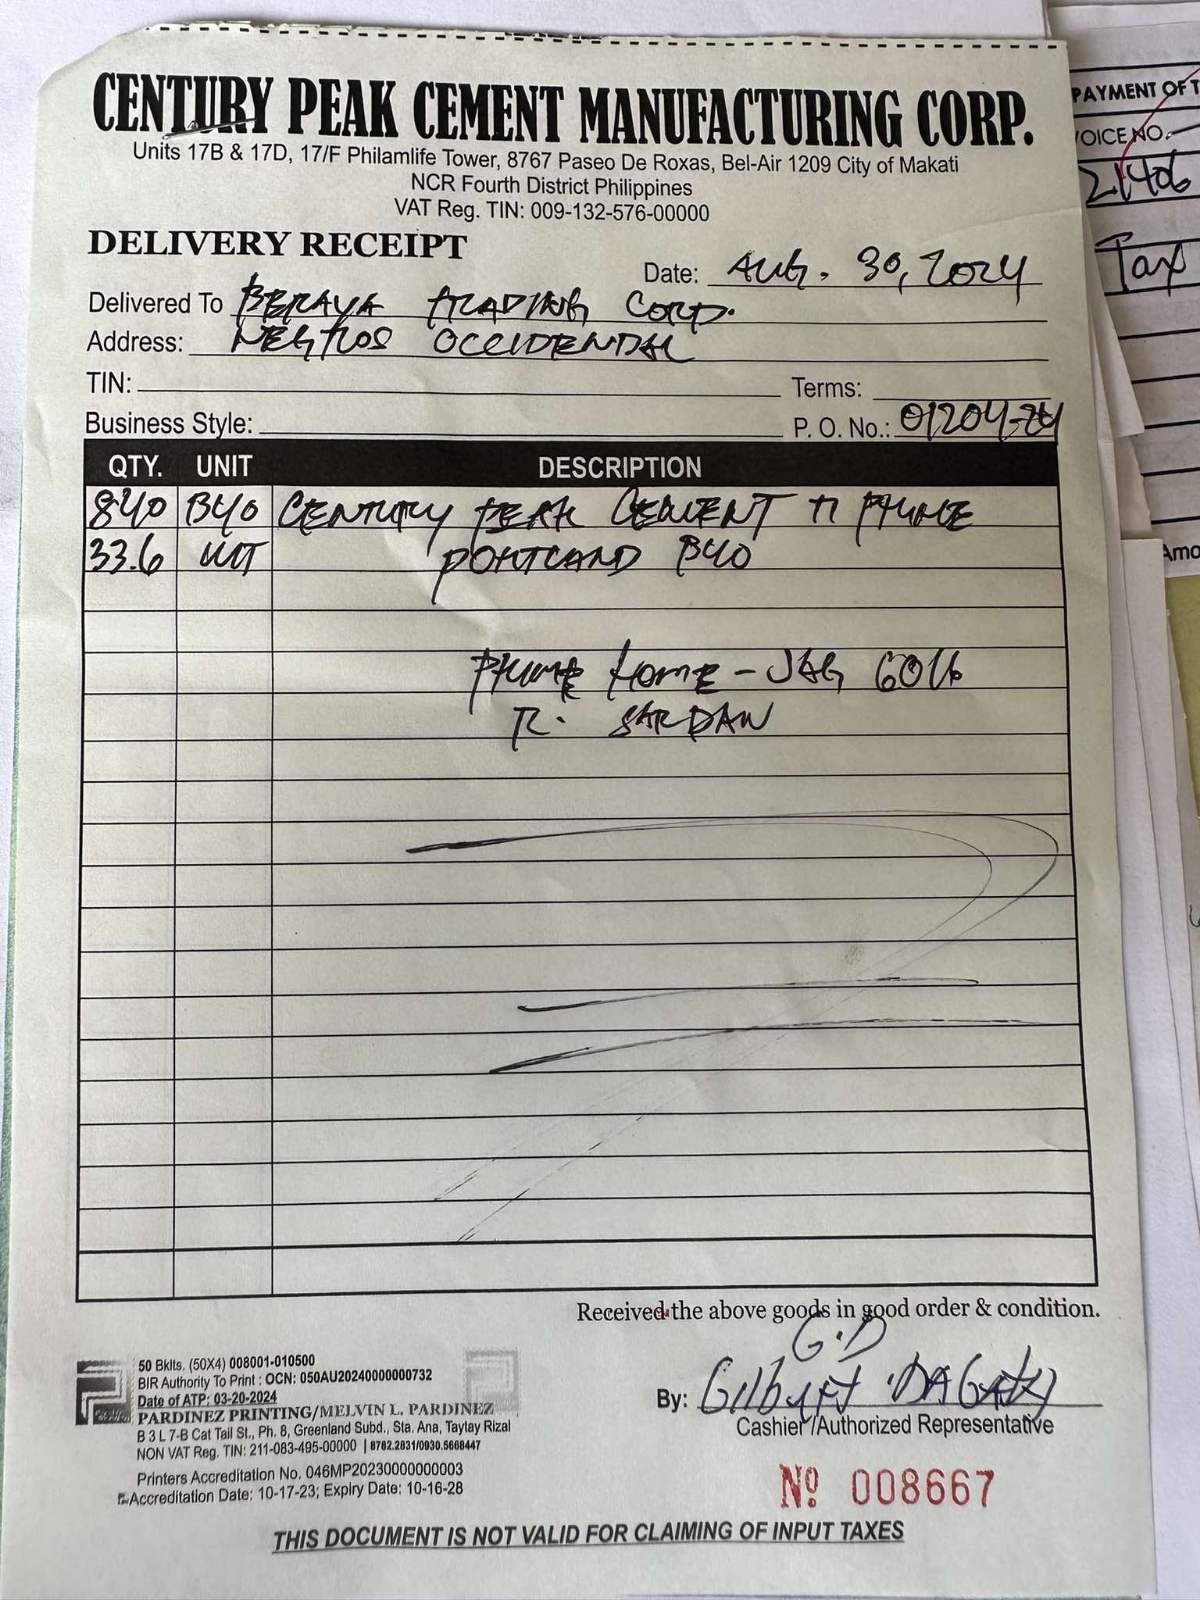 CENTURY PEAK CEMENT MANUFACTURING CORP.
Units 17B & 17D, 17/F Philamlife Tower, 8767 Paseo De Roxas, Bel-Air 1209 City of Makati
NCR Fourth District Philippines
VAT Reg. TIN: 009-132-576-00000
DELIVERY RECEIPT
Date: AUG. 30, 2024
Delivered To BERAYA TRADING CORP.
Address: NEGROS OCCIDENTAL
TIN:
Terms:
Business Style:
P. O. No.: 01204-24
QTY. UNIT DESCRIPTION
840 B40 CENTURY PEAK CEMENT PRIME
33.6 MT PORTLAND B40
PRIME HOME-JAG 6016
R. SARDAN
Received the above goods in good order & condition.
G.D
By: Gilbert
Cashier /Authorized Representative
50 Bklts. (50X4) 008001-010500
BIR Authority To Print : OCN: 050AU20240000000732
Date of ATP: 03-20-2024
PARDINEZ PRINTING/MELVIN L. PARDINEZ
B 3 L 7-B Cat Tail St., Ph. 8, Greenland Subd., Sta. Ana, Taytay Rizal
NON VAT Reg. TIN: 211-083-495-00000 | 8782.2831/0930.5668447
Printers Accreditation No. 046MP20230000000003
Accreditation Date: 10-17-23; Expiry Date: 10-16-28
Nº 008667
THIS DOCUMENT IS NOT VALID FOR CLAIMING OF INPUT TAXES
PAYMENT OF T
OICE NO.
21406
Tax
Amo